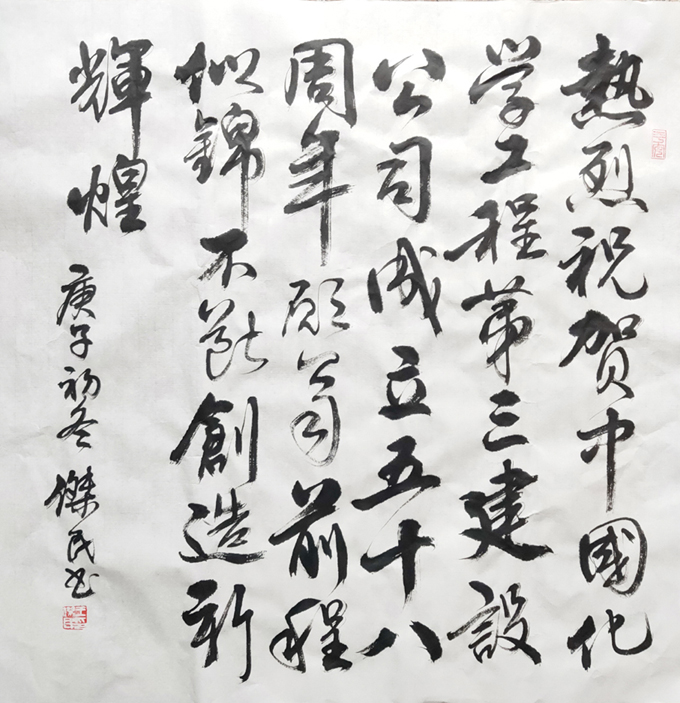 熱烈祝贺中國化
学工程第三建設
公司成立五十八
周年願公司前程
似錦不断創造新
輝煌
庚子初冬 傑民书